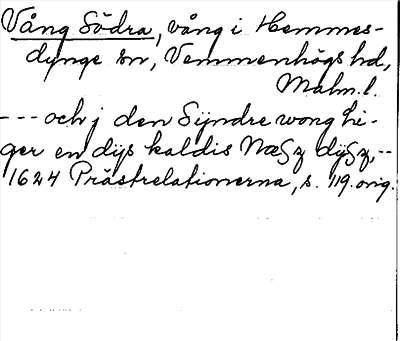 Vång Södra, vång i Hemmes-
dynge sn, Vemmenhögs hd,
Malm. l.
--- och j den Syndre wong li-
ger en dijs kaldis Næsz dysz,--
1624 Prästrelationerna, s. 119. orig.